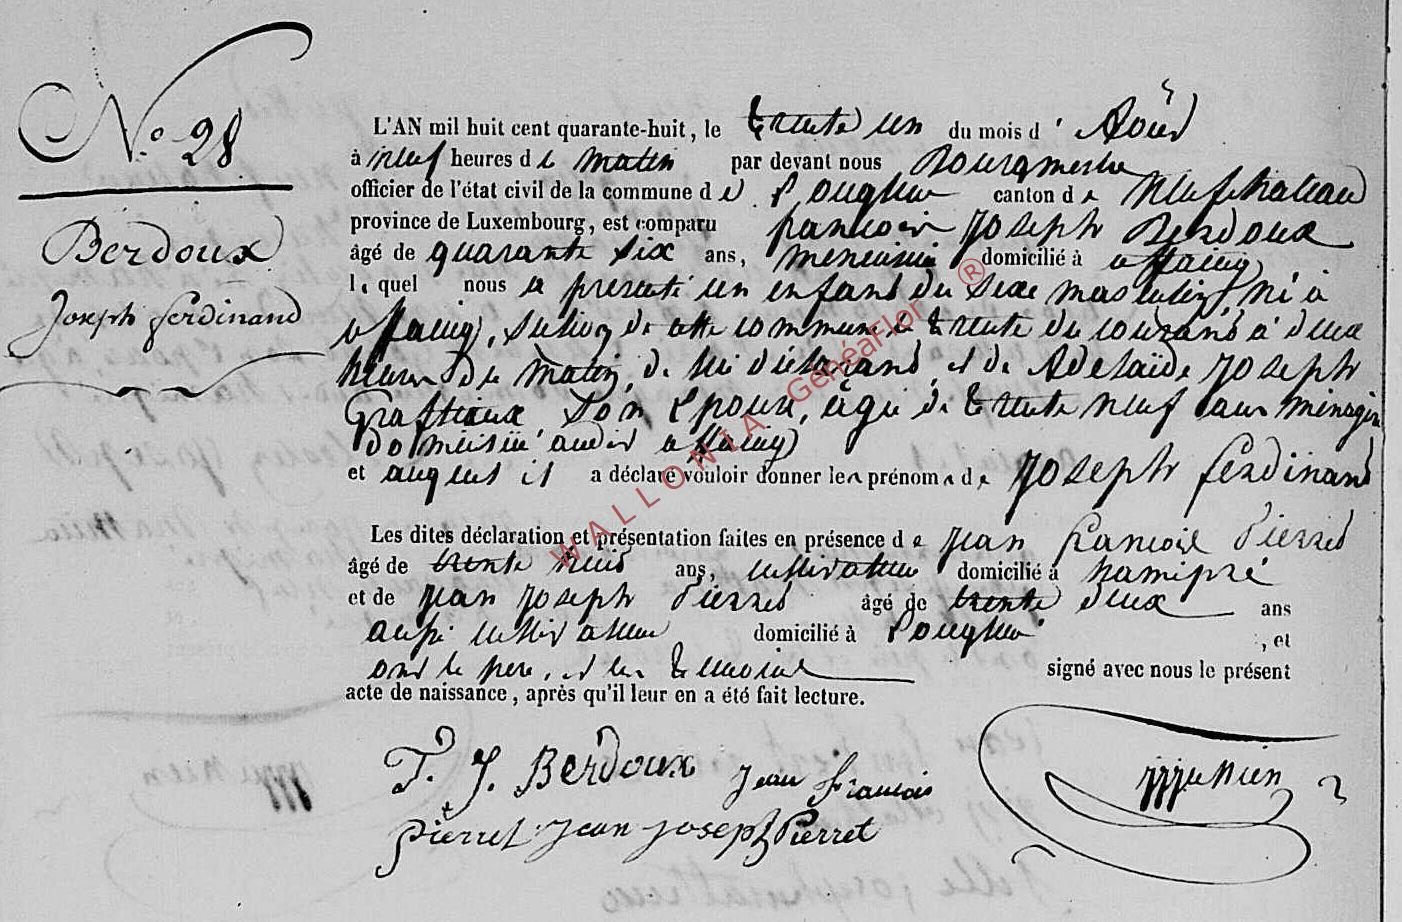 No. 28
Berdoux
Joseph ferdinand
L'AN mil huit cent quarante-huit, le trente un du mois d' Août
à neuf heures d e matin par devant nous Bourgmestre
officier de l'état civil de la commune d e Longlier canton d e Neufchateau
province de Luxembourg, est comparu francois Joseph Berdoux
âgé de quarante six ans, menuisier domicilié à offaing
le quel nous a presenté un enfant du sexe masculin, né à
offaing, section de cette commune le trente du courant à deux
heures du matin, de lui déclarant, et de Adelaïde Joseph
Graftiaux son Epouse, âgée de trente neuf ans ménagère
domiciliée audit offaing
et auquel il a déclaré vouloir donner les prénoms de Joseph ferdinand
Les dites déclaration et présentation faites en présence d e jean francois Pierret
âgé de trente ans, cultivateur domicilié à hamipré
et de jean joseph Pierret âgé de trente deux ans
aussi cultivateur domicilié à Longlier , et
ont le pere, et les temoins signé avec nous le présent
acte de naissance, après qu'il leur en a été fait lecture.
F. J. Berdoux jean francois
pierret jean joseph Pierret
WALLONIA GenéaFlor ®